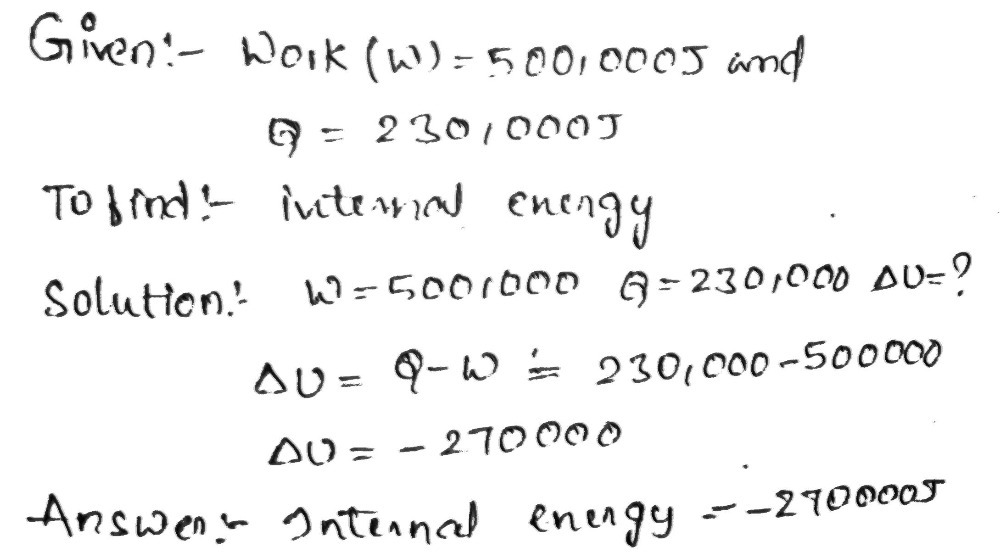 Given:- Work (W) = 500,000J and
Q = 230,000J
To find:- internal energy
Solution:- W = 500,000 Q = 230,000 ΔU=?
ΔU = Q-W = 230,000-500000
ΔU = -270000
Answer:- Internal energy = -270000J